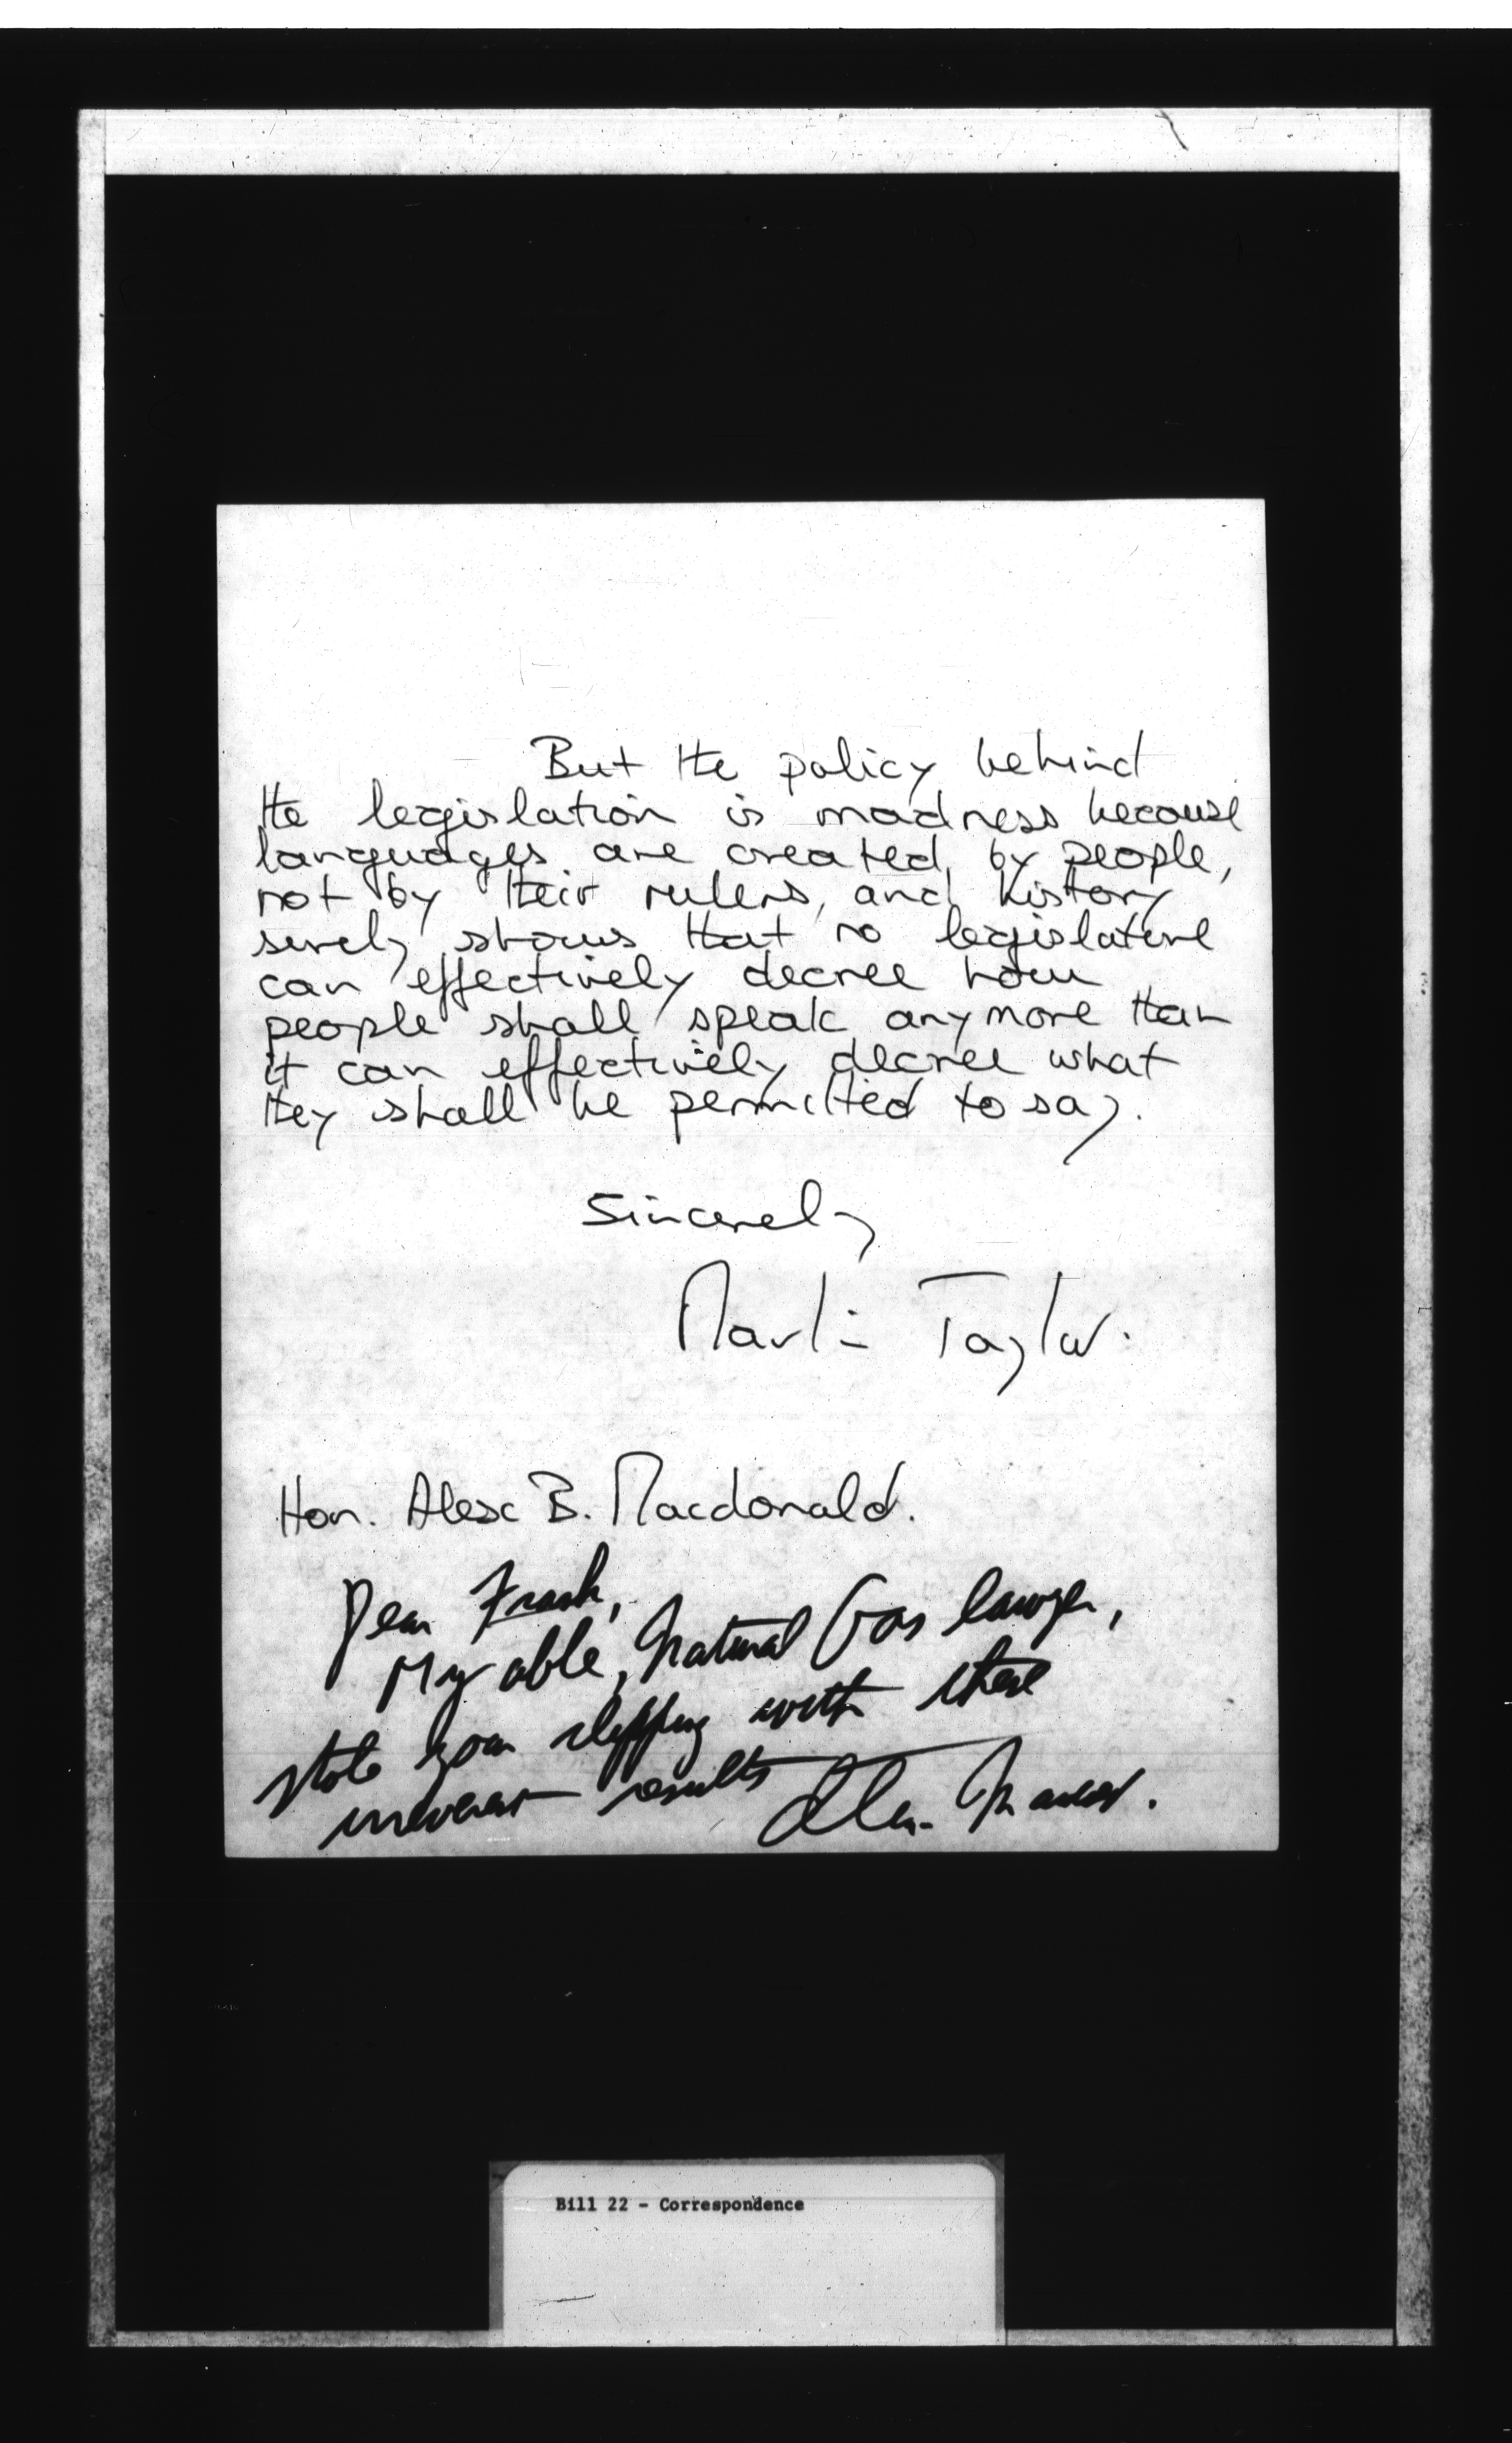 But the policy behind
the legislation is madness because
languages are created by people,
not by their rulers, and history
surely shows that no legislature
can effectively decree how
people shall speak anymore than
it can effectively decree what
they shall be permitted to say.
Sincerely
Martin Taylor.
Hon. Alex B. Macdonald.
Dear Frank,
My able, Natural Gas lawyer,
stole your clipping with these
irreverent results
Alex.
Bill 22 - Correspondence